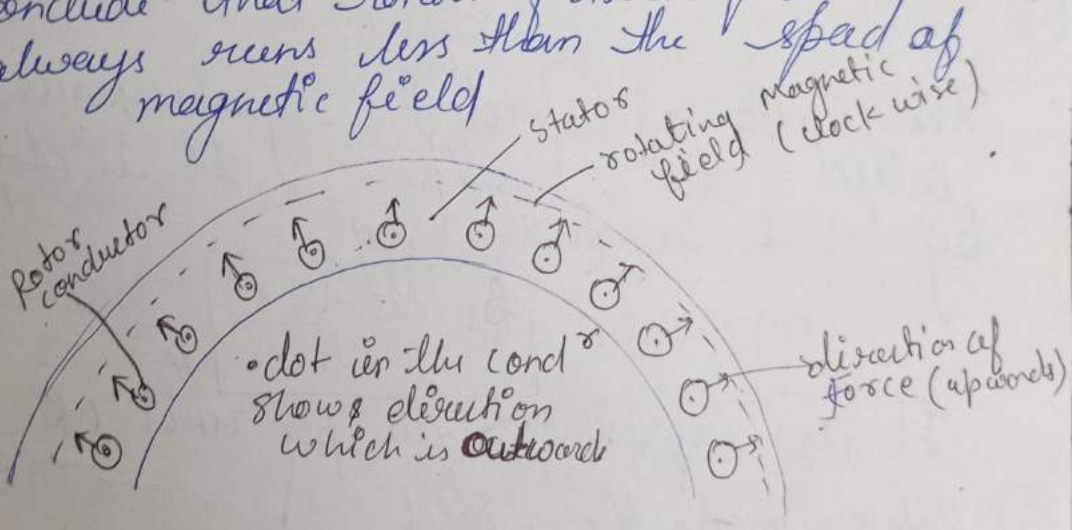 always runs less than the speed of
magnetic field
stator
rotating Magnetic
field (clock wise)
Rotor
conductor
• dot in the cond r
shows direction
which is outward
direction of
force (upwards)